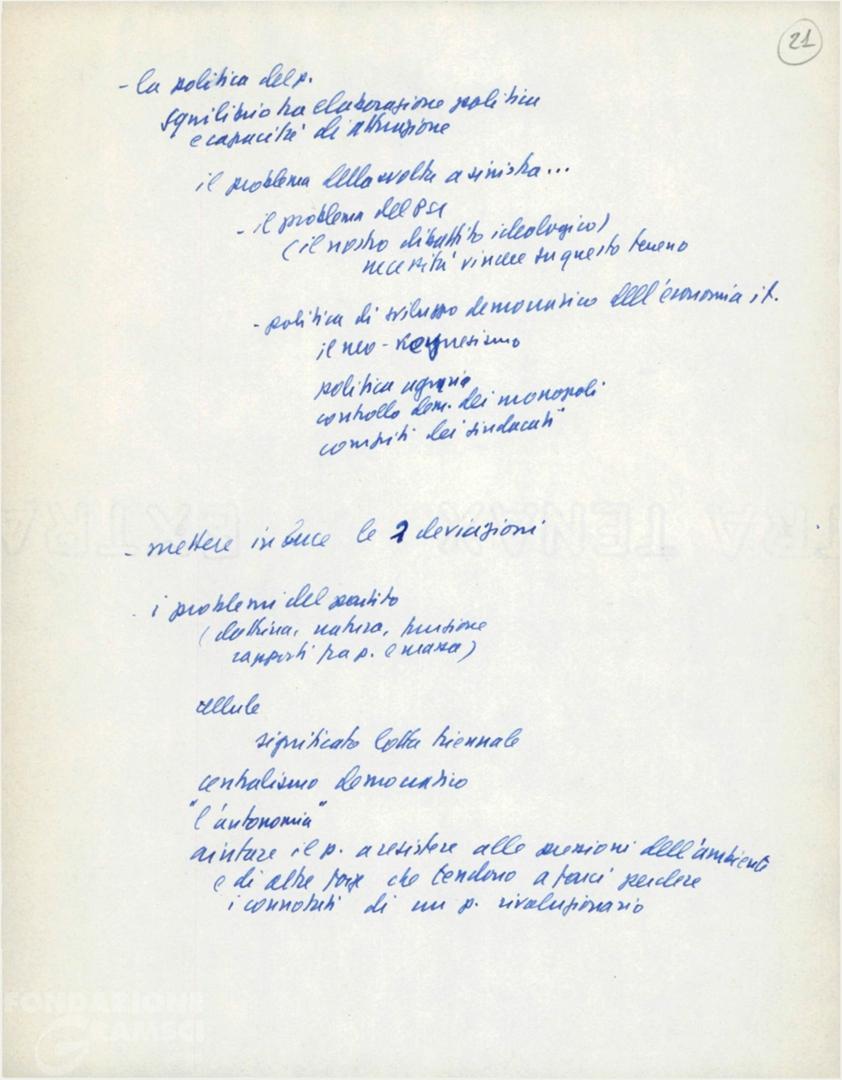 21
- la politica del p.
squilibrio tra elaborazione politica
e capacità di attrazione
il problema della svolta a sinistra...
- il problema del PSI
(il nostro dibattito ideologico)
necessità vincere su questo terreno
- politica di sviluppo democratico dell'economia it.
il neo-keynesismo
politica agraria
controllo dem. dei monopoli
compiti dei sindacati
- mettere in luce le 2 deviazioni
- i problemi del partito
(dottrina, natura, funzione
rapporti tra p. e massa)
cellule
significato lotta triennale
centralismo democratico
"l'autonomia"
aiutare il p. a resistere alle pressioni dell'ambiente
e di altre forze che tendono a farci perdere
i connotati di un p. rivoluzionario
EXTRA TENAX
FONDAZIONE
GRAMSCI